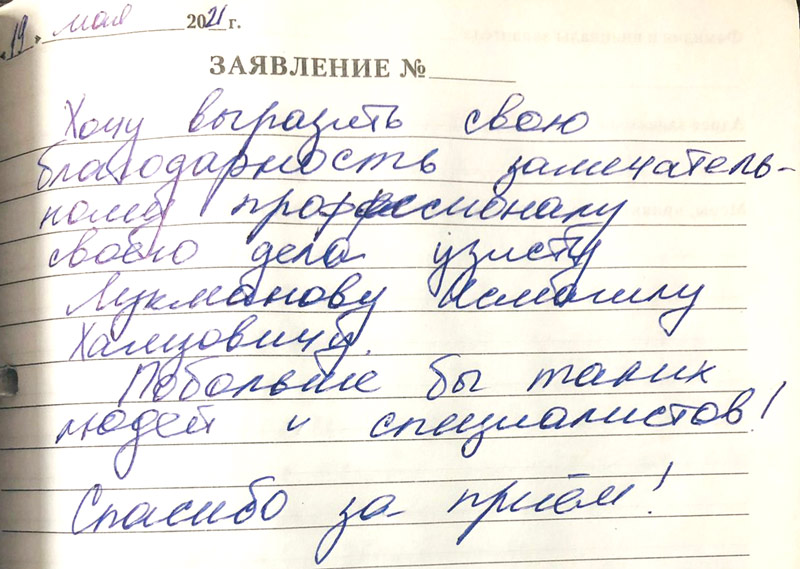 "19" мая 2021 г.
ЗАЯВЛЕНИЕ №
Хочу выразить свою
благодарность замечатель-
ному профессионалу
своего дела узисту
Лукманову Исмагилу
Хамзовичу.
Побольше бы таких
людей и специалистов!
Спасибо за приём!